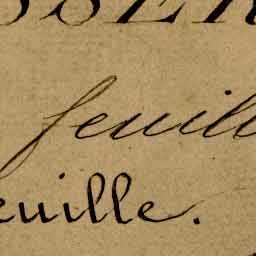 feuill
euille.